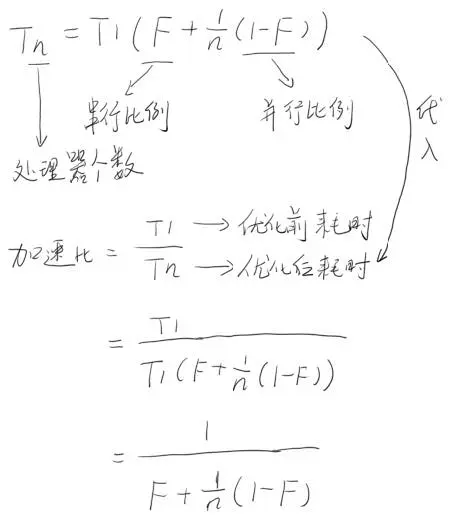 Tn = T1 (F + 1/n (1-F))
串行比例 并行比例 代入
处理器个数
加速比 = T1/Tn
T1 → 优化前耗时
Tn → 优化后耗时
= T1/(T1(F + 1/n (1-F)))
= 1/(F + 1/n (1-F))